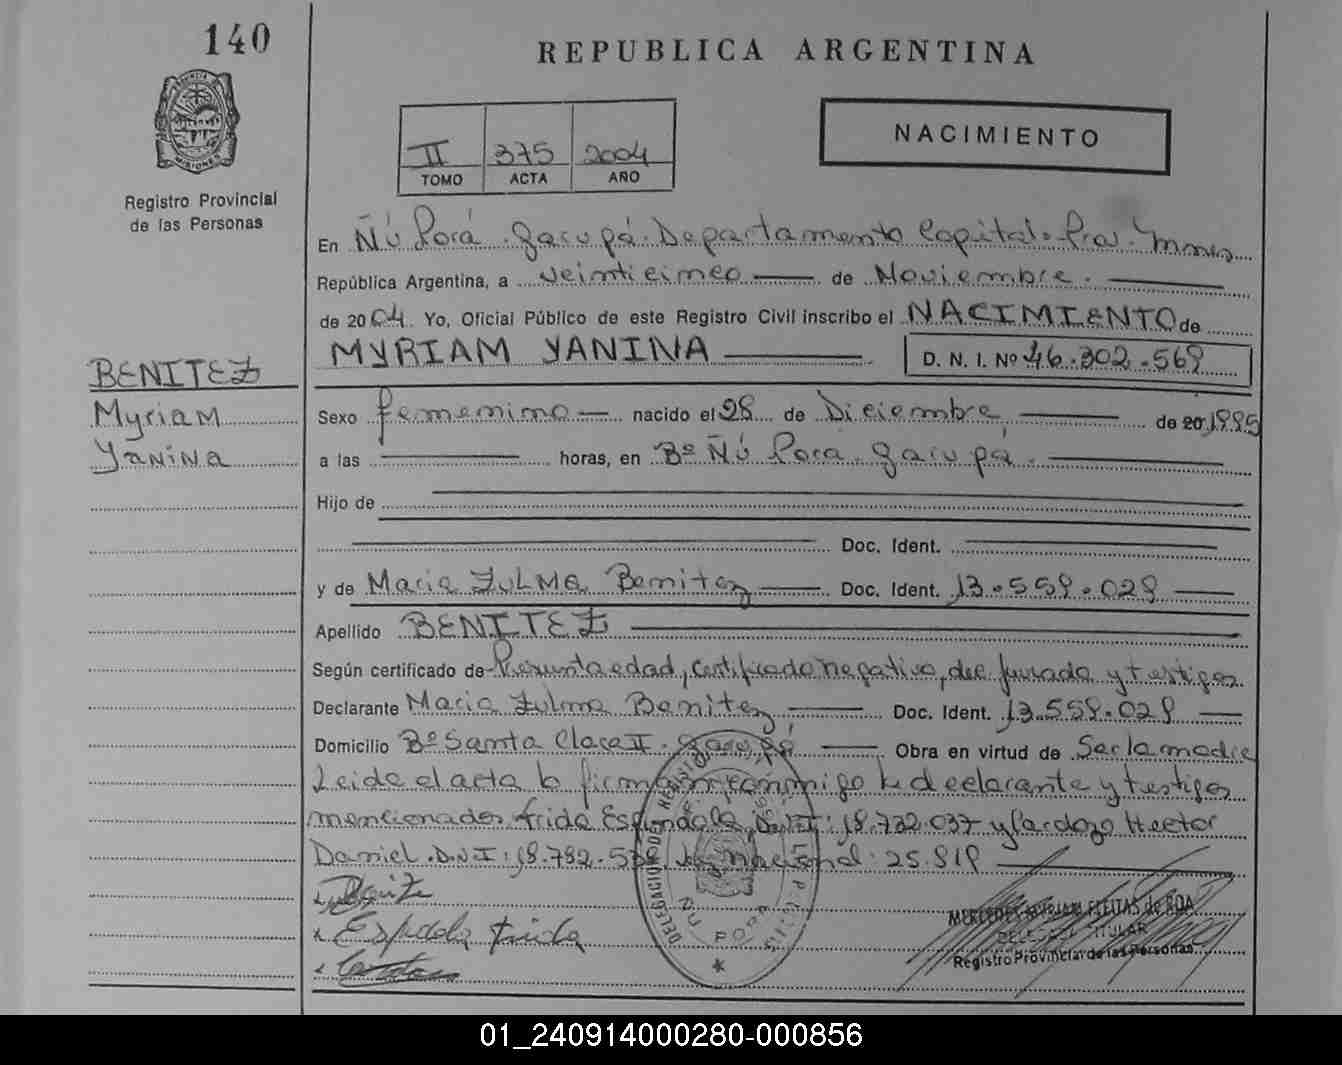 140
REPUBLICA ARGENTINA
NACIMIENTO
II 375 2004
TOMO ACTA AÑO
MISIONES
Registro Provincial
de las Personas
En Ñú Porá. Garupá. Departamento Capital. Prov. Mnes
República Argentina, a veinticinco de Noviembre.
de 2004. Yo, Oficial Público de este Registro Civil inscribo el NACIMIENTO de
MYRIAM YANINA D. N. I. Nº 46.302.569
BENITEZ
Myriam
Yanina
Sexo femenino nacido el 28 de Diciembre de 20 1995
a las horas, en Bº Ñú Porá. Garupá.
Hijo de
Doc. Ident.
y de Maria ZULMA Benitez Doc. Ident. 13.559.029
Apellido BENITEZ
Según certificado de Presunta edad, certificado negativo, dec. jurada y testigos
Declarante Maria Zulma Benitez Doc. Ident. 13.559.029
Domicilio Bº Santa Clara II. Garupá Obra en virtud de Ser la madre
Leida el acta la firman conmigo la declarante y testigos
mencionados Frida Espindola D.N.I: 18.732.037 y Cardozo Hector
Daniel. D.N.I: 18.782. nacional: 25.819
Benitez
Espindola Frida
MERCEDES MYRIAM FLEITAS de ROA
DELEGADA TITULAR
Registro Provincial de las Personas
DELEGACION DEL REGISTRO
ÑU PORA
01_240914000280-000856